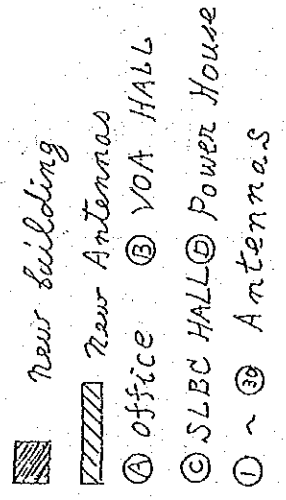 new building
new Antennas
Ⓐ office Ⓑ VOA HALL
Ⓒ SLBC HALL Ⓓ Power House
① ~ ㊴ Antennas